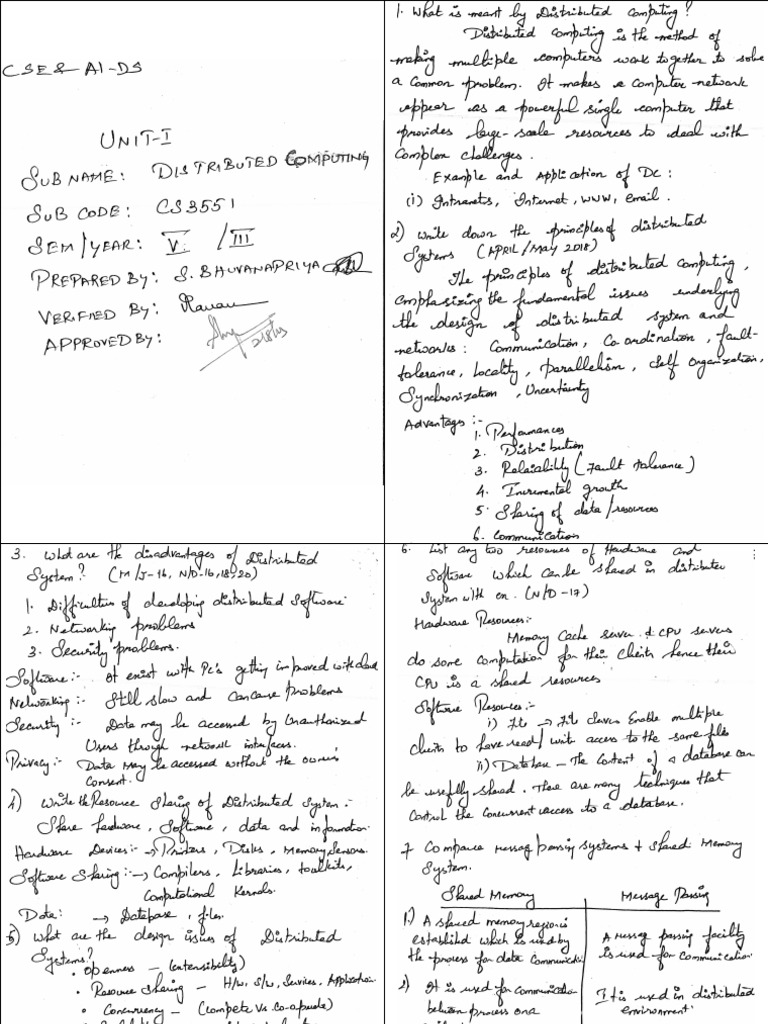 CSE & AI-DS
UNIT-I
SUB NAME: DISTRIBUTED COMPUTING
SUB CODE: CS3551
SEM/YEAR: V / III
PREPARED BY: S. BHUVANAPRIYA
VERIFIED BY:
APPROVED BY:
1. What is meant by Distributed Computing?
Distributed Computing is the method of
making multiple computers work together to solve
a common problem. It makes a computer network
appear as a powerful single computer that
provides large-scale resources to deal with
complex challenges.
Example and Application of DC:
(i) Intranets, Internet, WWW, email.
2) Write down the principles of distributed
Systems (APRIL/MAY 2018)
The principles of distributed computing,
emphasizing the fundamental issues underlying
the design of distributed system and
networks: Communication, Co ordination, fault-
tolerance, Locality, parallelism, Self Organization,
Synchronization, Uncertainty
Advantages:-
1. Performances
2. Distribution
3. Relaiability (Fault tolerance)
4. Incremental growth
5 Sharing of data/resources
6. Communication
3. What are the disadvantages of Distributed
System? (M/J-16, N/D-16,18,20)
1. Difficulties of developing distributed Software
2. Networking problems
3. Security problems.
Software:- It exist with Pc's getting improved with
Networking:- Still slow and can cause problems
Security:- Data may be accessed by Unauthorized
Users through network interfaces.
Privacy:- Data may be accessed without the owner's
Consent.
4) Write the Resource Sharing of Distributed System:-
Share hardware, Software, data and information.
Hardware Devices:- → Printers, Disks, Memory Sensors.
Software Sharing:- → Compilers, Libraries, toolkits,
Computational Kernels.
Data: → Database, files.
5) What are the design issues of Distributed
Systems?
• Openness - (extensibility)
• Resource Sharing - H/w, S/w, Services, Application.
• Concurrency - (Compete Vs Co-operate)
6. List any two resources of Hardware and
Software which can be shared in distributed
System with ex. (N/D-17)
Hardware Resources:-
Memory Cache server & CPU servers
do some computation for their clients hence their
CPU is a shared resources
Software Resources:-
i) File → File servers Enable multiple
clients to have read/write access to the same files
ii) Database - The Content of a database can
be usefully shared. There are many techniques that
control the concurrent access to a database.
7 Compare message passing systems & Shared Memory
System.
Shared Memory Message Passing
1.) A shared memory region is
established which is used by
the process for data communication
A messag passing facility
is used for communication
2) It is used for communication
between process on a
It is used in distributed
environment.